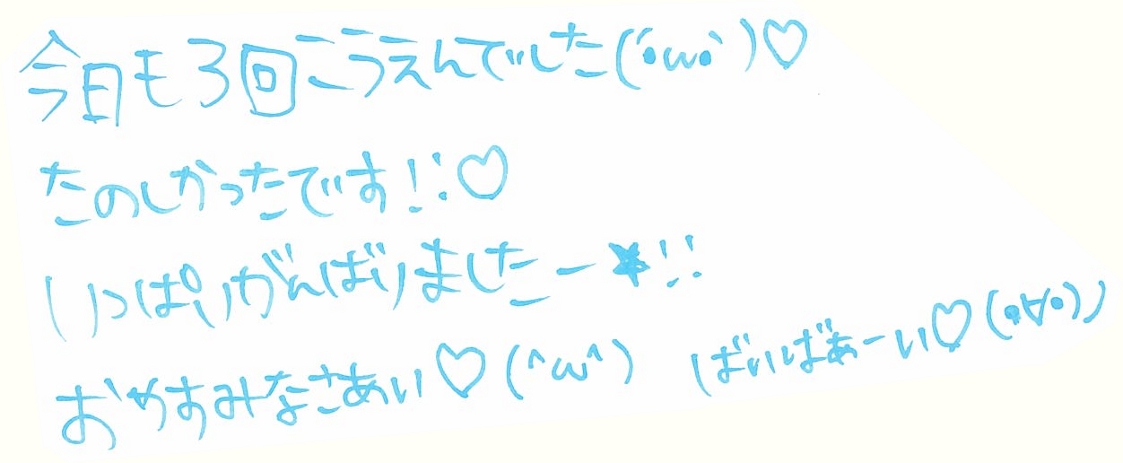 今日も3回こうえんでした(´•ω•`)♡
たのしかったです!!♡
いっぱいがんばりましたー★!!
おやすみなさあい♡(^ω^) ばいばあーい♡(•∀•)ノ